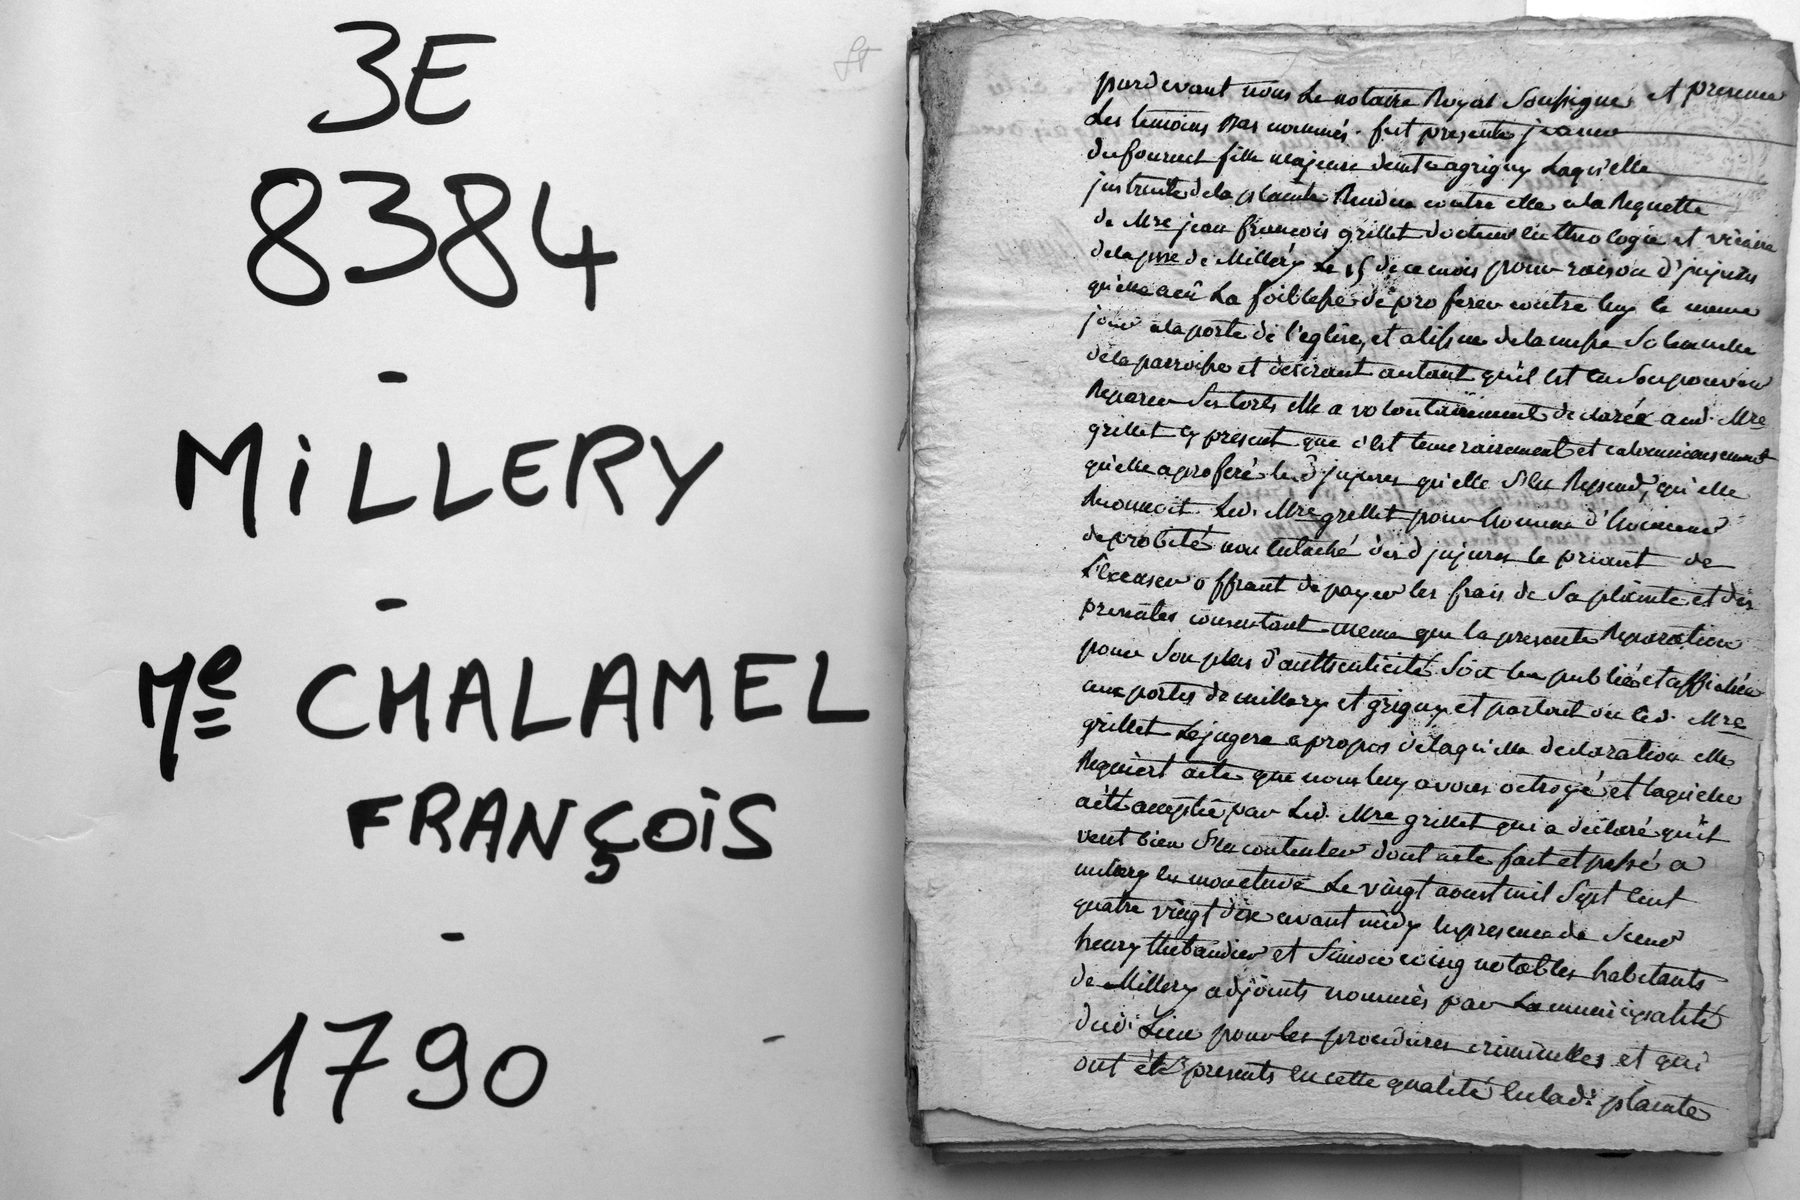 3E
8384
-
MiLLERY
-
Me CHALAMEL
FRANÇOIS
-
1790
pardevant nous Le notaire Royal Soussigné et presence
Les temoins Bas nommés. fut presente jeanne
dufournet fille majeure demte a grigny Laquelle
justruite de la plainte Rendue contre elle a la Requette
de Mre jean françois grillet docteur en theologie et vicaire
de la psse de Millery Le 15 de ce mois pour raison d'jnjures
qu'elle a eü La foiblesse de proferer contre luy le meme
jour a la porte de l'eglise, et a l'issue de la messe Solemnelle
de la parroisse et desirant autant qu'il est en Son pouvoir
Reparer Ses torts elle a volontairement declarée aud. Mre
grillet Cy present que c'est temerairement et calomnieusement
qu'elle a proferé les d. jnjures qu'elle S'en Repend, qu'elle
Reconnoit Led. Mre grillet pour homme d'honneur
de probité non entaché desd jnjures le priant de
L'excuser offrant de payer les frais de Sa plainte et des
presentes consentant meme que la presente Reparation
pour Son plus d'authenticité Soit lue publiée et affichée
aux portes de millery et grigny et partout ou led. Mre
grillet Le jugera a propos de laquelle declaration elle
Requiert acte que nous luy avons octroyé et laquelle
a été acceptée par Led. Mre grillet qui a déclaré qu'il
veut bien S'en contenter dont acte fait et passé a
millery en mon etude Le vingt aoust mil Sept Cent
quatre vingt dix avant midy En presence de Sieur
henry thebaudier et Simon coing notables habitants
de Millery adjoints nommés par La municipalité
dud. Lieu pour les procedures criminelles et qui
ont été presents en cette qualité en lad. plainte